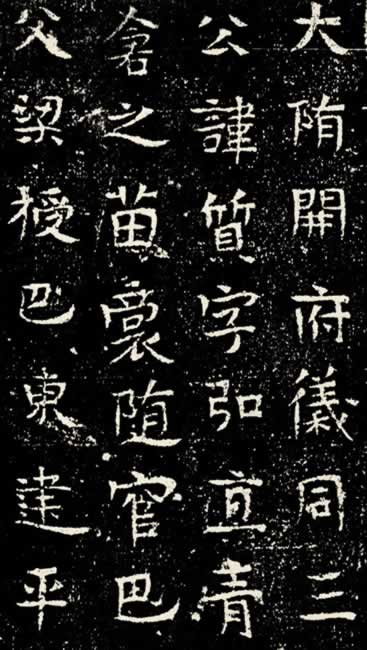 大陏開府儀同三
公諱質字弘直青
倉之苗裔随官巴
父梁授巴東建平